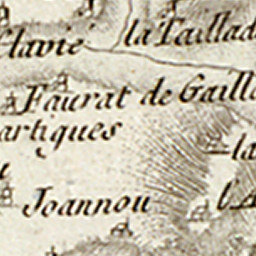 clavié
la Taillad
Faurat de Gaill
artiques
la
Joannou